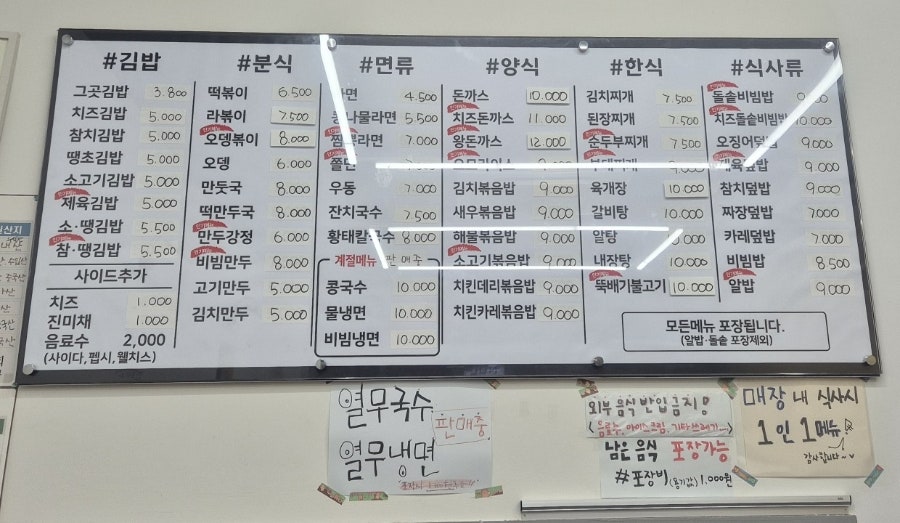 #김밥
그곳김밥 3.800
치즈김밥 5.000
참치김밥 5.000
땡초김밥 5.000
소고기김밥 5.000
제육김밥 5.000
소·땡김밥 5.500
참·땡김밥 5.500
사이드추가
치즈 1.000
진미채 1.000
음료수 2,000
(사이다, 펩시, 웰치스)
#분식
떡볶이 6.500
라볶이 7.500
오뎅볶이 8.000
오뎅 6.000
만둣국 8.000
떡만두국 8.000
만두강정 6.000
비빔만두 8.000
고기만두 5.000
김치만두 5.000
#면류
라면 4.500
콩나물라면 5.500
짬뽕라면 7.000
쫄면
우동 7.000
잔치국수 7.500
황태칼국수 8.000
계절메뉴 판매중
콩국수 10.000
물냉면 10.000
비빔냉면 10.000
#양식
돈까스 10.000
치즈돈까스 11.000
왕돈까스 12.000
오므라이스
김치볶음밥 9.000
새우볶음밥 9.000
해물볶음밥 9.000
소고기볶음밥 9.000
치킨데리볶음밥 9.000
치킨카레볶음밥 9.000
#한식
김치찌개 7.500
된장찌개 7.500
순두부찌개 7.500
부대찌개
육개장 10.000
갈비탕 10.000
알탕
내장탕 10.000
뚝배기불고기 10.000
#식사류
돌솥비빔밥
치즈돌솥비빔밥 10.000
오징어덮밥 9.000
제육덮밥 9.000
참치덮밥 9.000
짜장덮밥 7.000
카레덮밥 7.000
비빔밥 8.500
알밥 9.000
모든메뉴 포장됩니다.
(알밥·돌솥 포장제외)
열무국수
열무냉면
판매중
외부 음식 반입 금지!
<음료수, 아이스크림, 기타쓰레기...>
남은 음식 포장가능
#포장비(용기값) 1.000원
매장 내 식사시
1인 1메뉴!
감사합니다~